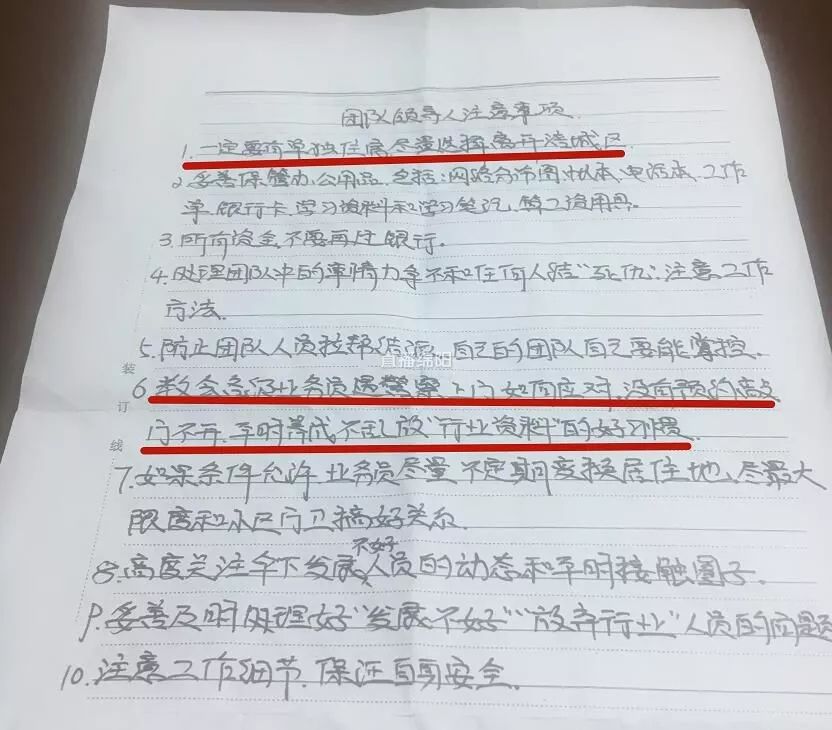 团队领导人注意事项
1.一定要有单独住房,尽量选择离开涪城区
2.妥善保管办公用品,包括:网路分布图,状本、电话本、工作
第,银行卡,学习资料和学习笔记,等工资用具。
3.所有资金,不要再过银行。
4.处理团队中的事情力争不和任何人结"死仇",注意工作
方法.
5.防止团队人员拉帮结派,自己的团队自己要能掌控.
直播绵阳
装
6.教会各级业务员遇警察上门如何应对,没有预约敲
订
门不开,平时养成不乱放"行业资料"的好习惯
线
7.如果条件允许,业务员尽量不定期变换居住地,尽最大
限度和小区门卫搞好关系.
不好
8.高度关注伞下发展人员的动态和平时接触圈子.
9.妥善及时处理好"发展不好""放弃行业"人员的问题
10.注意工作细节,保证自身安全.